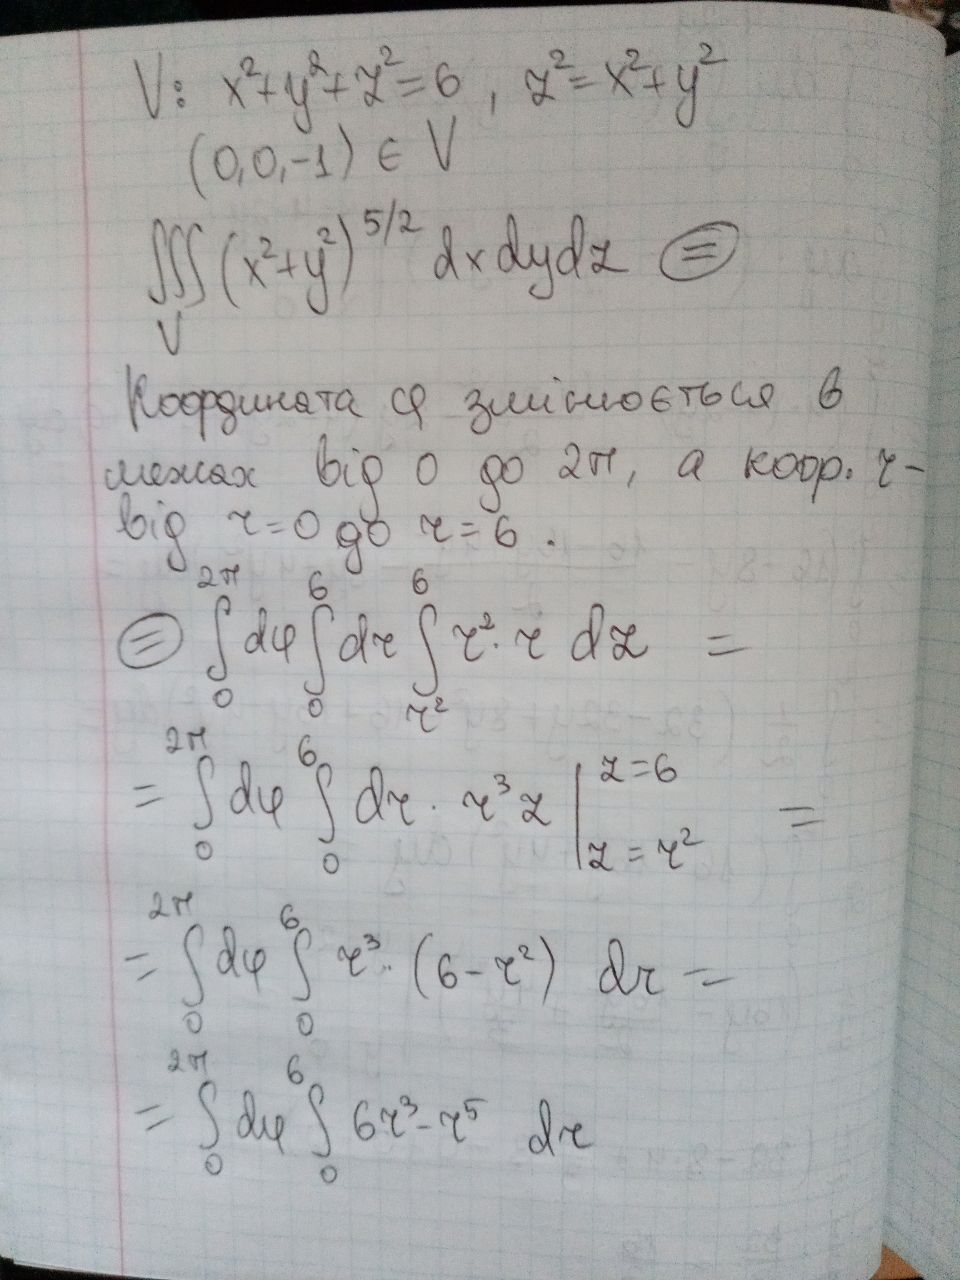 V: x²+y²+z²=6, z²=x²+y²
(0,0,-1) ∈ V
∭_V (x²+y²)^{5/2} dxdydz =
Координата φ змінюється в
межах від 0 до 2π, а коор. r -
від r=0 до r=6.
= ∫_0^{2π} dφ ∫_0^6 dr ∫_{r²}^6 r²·r dz =
= ∫_0^{2π} dφ ∫_0^6 dr · r³z |_{z=r²}^{z=6} =
= ∫_0^{2π} dφ ∫_0^6 r³·(6-r²) dr =
= ∫_0^{2π} dφ ∫_0^6 6r³-r⁵ dr